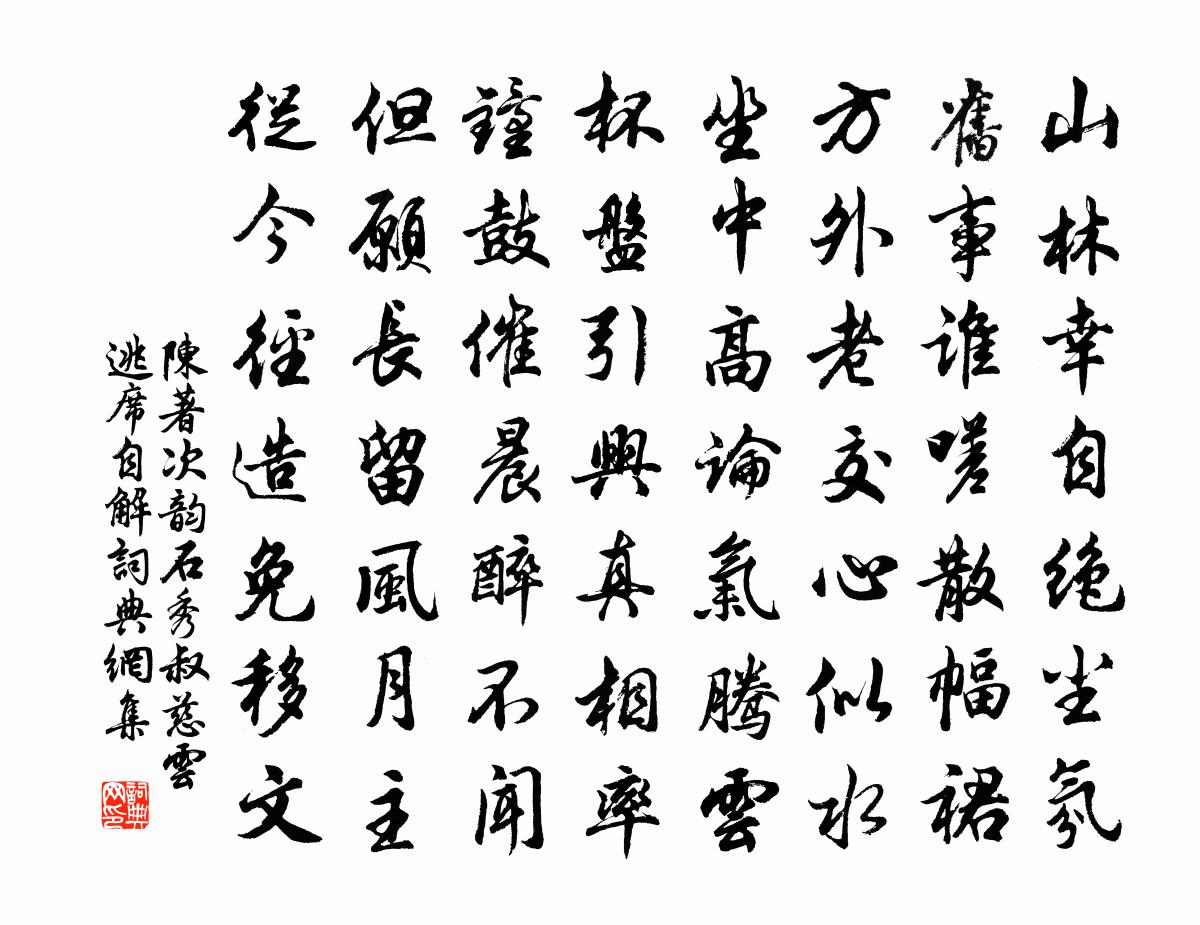 山林幸自絶尘氛
舊事誰嗟散幅裙
方外老交心似水
坐中高論氣騰雲
杯盤引興真相率
鐘鼓催晨醉不聞
但願長留風月主
從今徑造免移文
陳著次韵石秀叔慈雲
逃席自解詞典網集
詞典网印